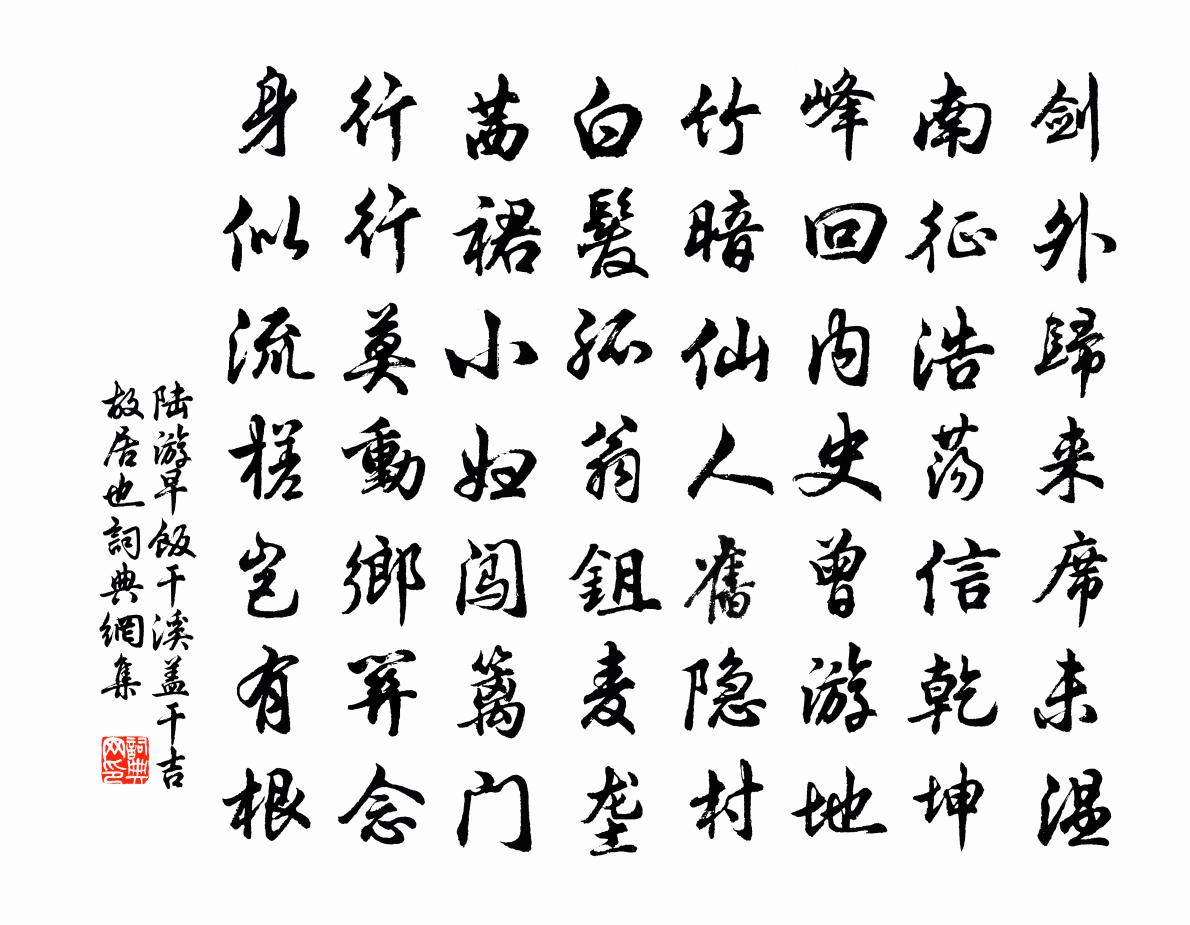 剑外歸来席未温
南征浩荡信乾坤
峰回内史曾游地
竹暗仙人舊隐村
白髮孤翁鉏麦垄
茜裙小妇闯篱门
行行莫動鄉関念
身似流槎岂有根
陆游早飯干溪盖干吉
故居也詞典網集
詞典网印